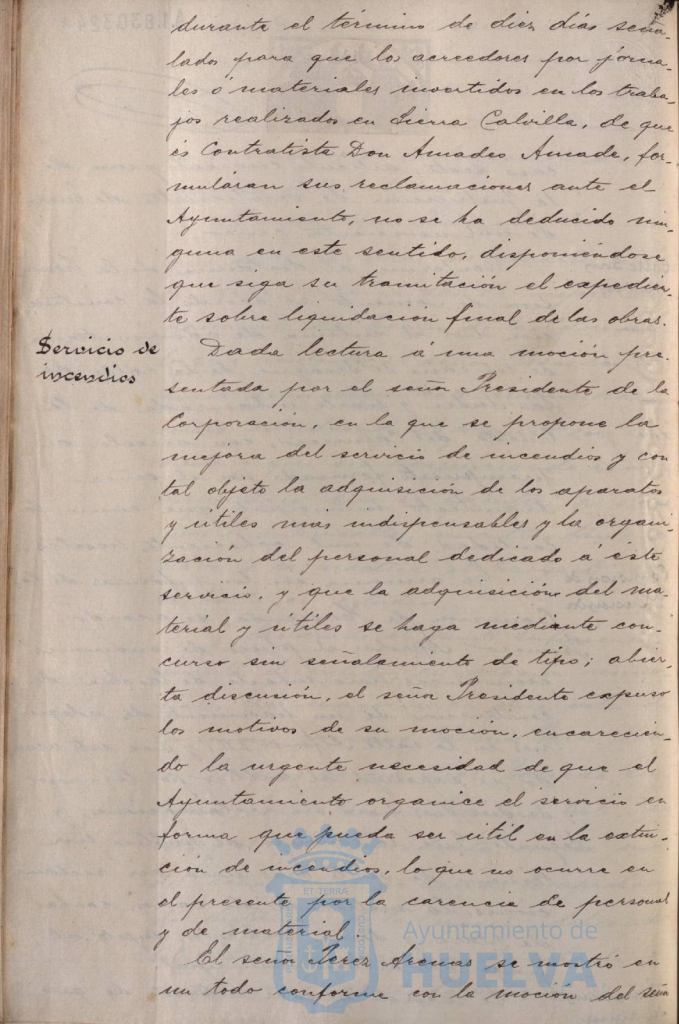 durante el término de diez días seña-
lados para que los acreedores por jorna-
les ó materiales invertidos en los traba-
jos realizados en Sierra Calvilla, de que
es Contratista Don Amadeo Amade, for-
muláran sus reclamaciones ante el
Ayuntamiento, no se ha deducido nin-
guna en este sentido, disponiéndose
que siga su tramitación el expedien-
te sobre liquidación final de las obras.
Servicio de
incendios
Dada lectura á una moción pre-
sentada por el señor Presidente de la
Corporación, en la que se propone la
mejora del servicio de incendios y con
tal objeto la adquisición de los aparatos
y útiles mas indispensables y la organi-
zación del personal dedicado á éste
servicio, y que la adquisición del ma-
terial y útiles se haga mediante con-
curso sin señalamiento de tipo; abier-
ta discusión, el señor Presidente expuso
los motivos de su moción, encarecien-
do la urgente necesidad de que el
Ayuntamiento organice el servicio en
forma que pueda ser útil en la extin-
ción de incendios, lo que no ocurre en
el presente por la carencia de personal
y de material.
El señor Perez Arenas se mostró en
un todo conforme con la moción del señor
Ayuntamiento de
HUELVA